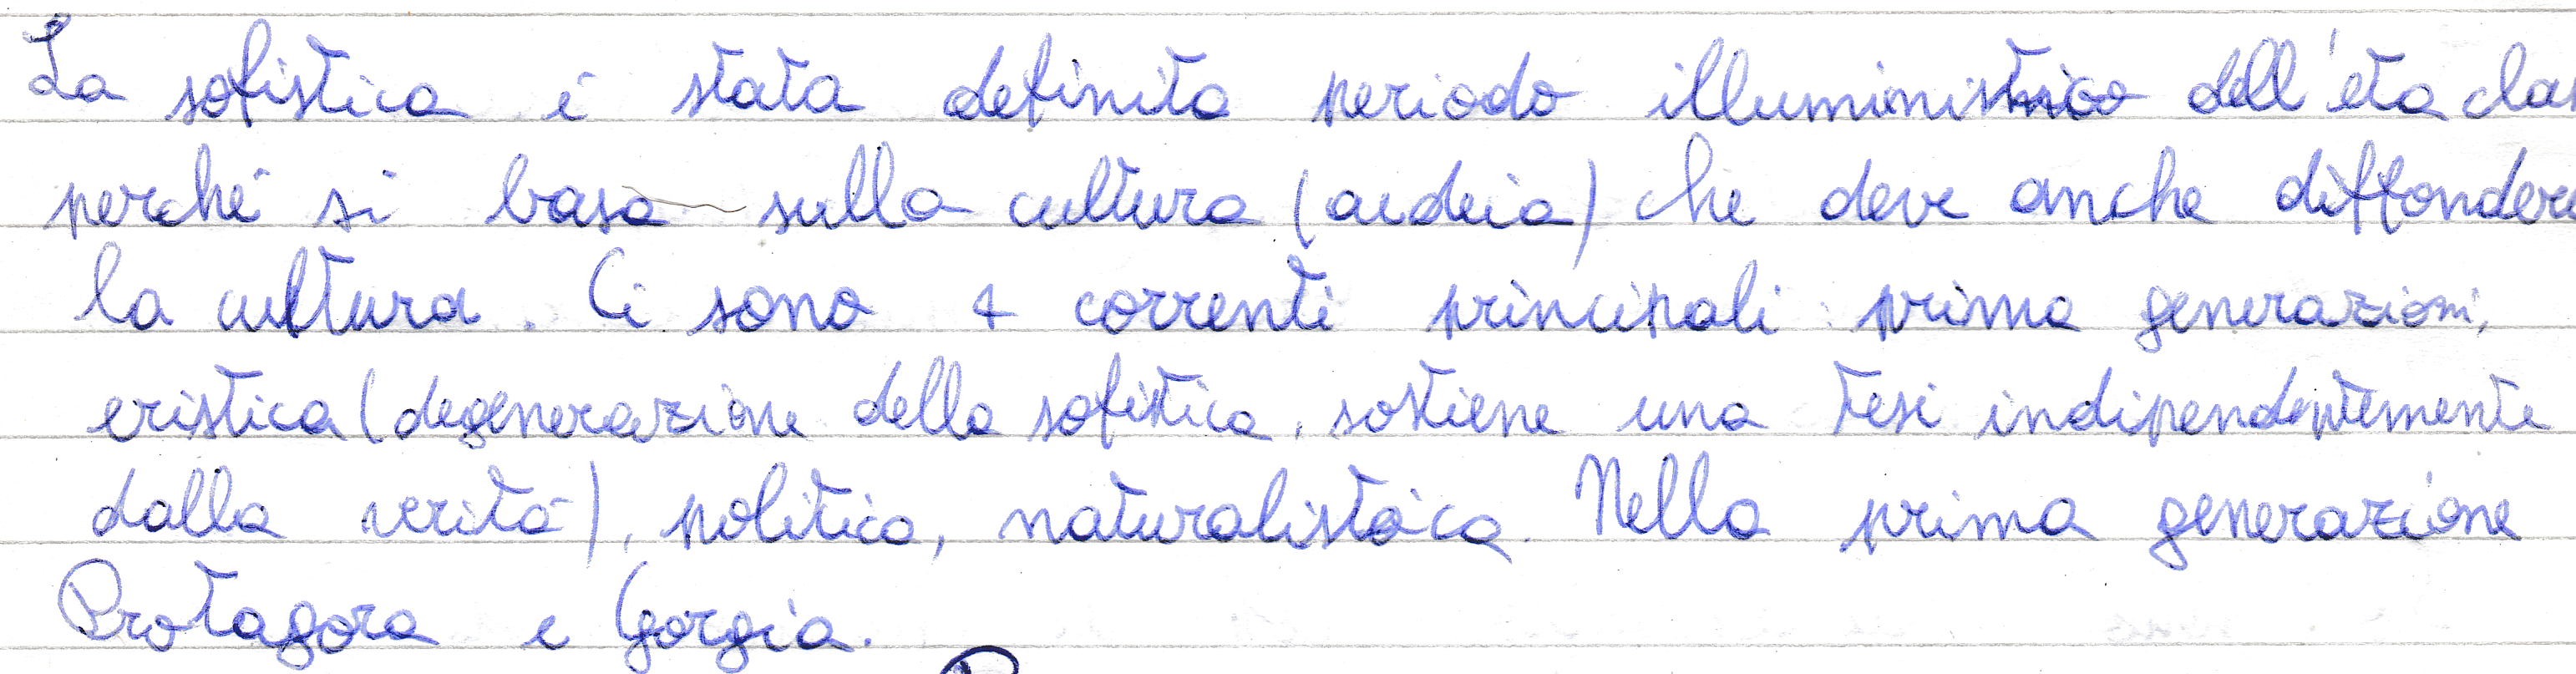 La sofistica è stata definita periodo illuministico dell'età clas
perché si basa sulla cultura (aideia) che deve anche diffondere
la cultura. Ci sono 4 correnti principali: prima generazioni,
eristica (degenerazione della sofistica, sostiene una tesi indipendentemente
dalla verità), politica, naturalistica. Nella prima generazione
Protagora e Gorgia.